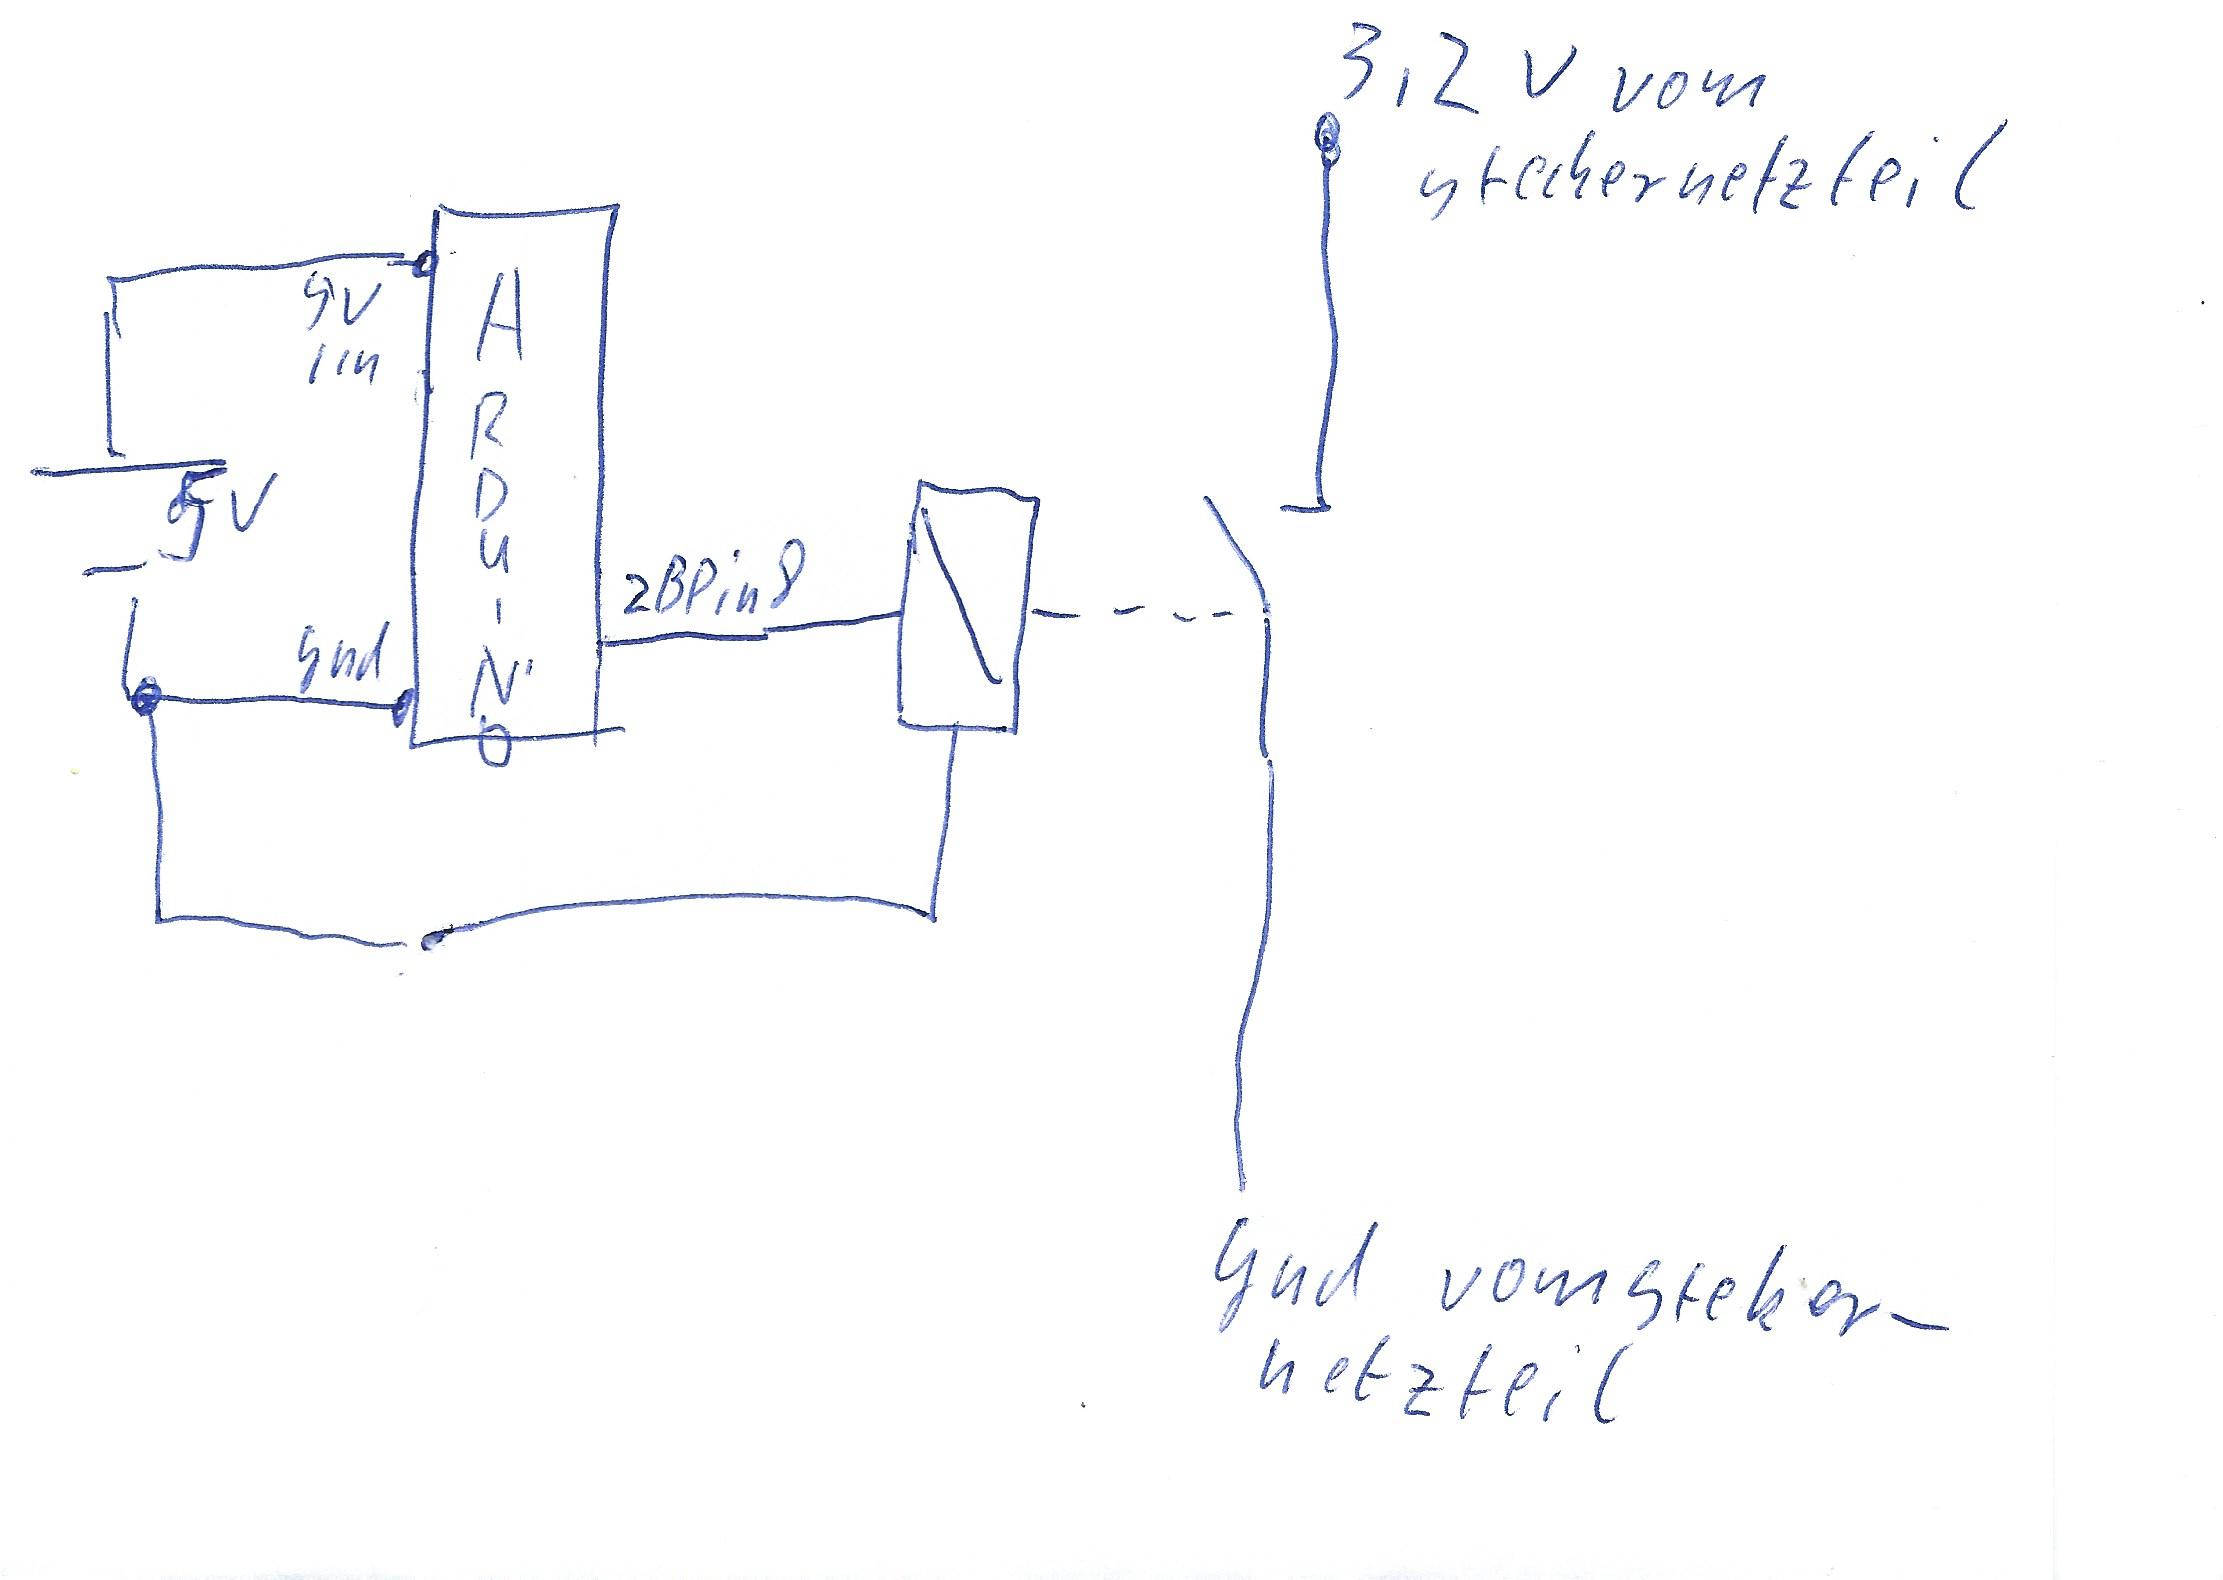 3,2 V vom
steckernetzteil
5V
in
ARDUINO
5V
zBPin8
gnd
Gnd vomsteker-
netzteil